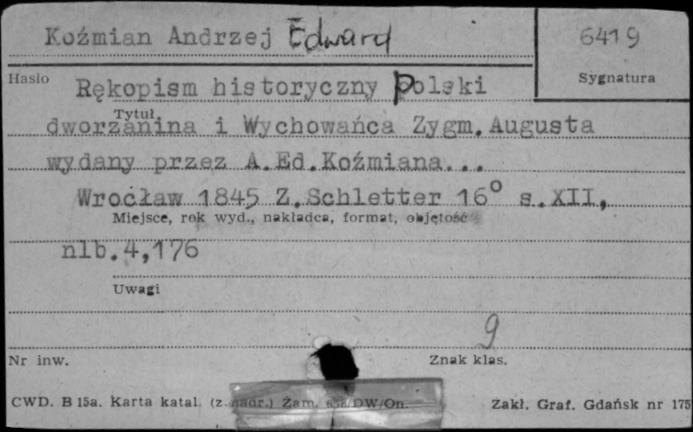 Koźmian Andrzej Edward
6419
Hasło
Sygnatura
Rękopism historyczny Polski
Tytuł
dworzanina i Wychowańca Zygm. Augusta
wydany przez A.Ed.Koźmiana...
Wrocław 1845 Z.Schletter 16° s.XII,
Miejsce, rok wyd., nakładca, format, objętość
nlb.4,176
Uwagi
9
Nr inw.
Znak klas.
CWD. B 15a. Karta katal. (z nadr.) Zam. /DW/On.
Zakł. Graf. Gdańsk nr 175